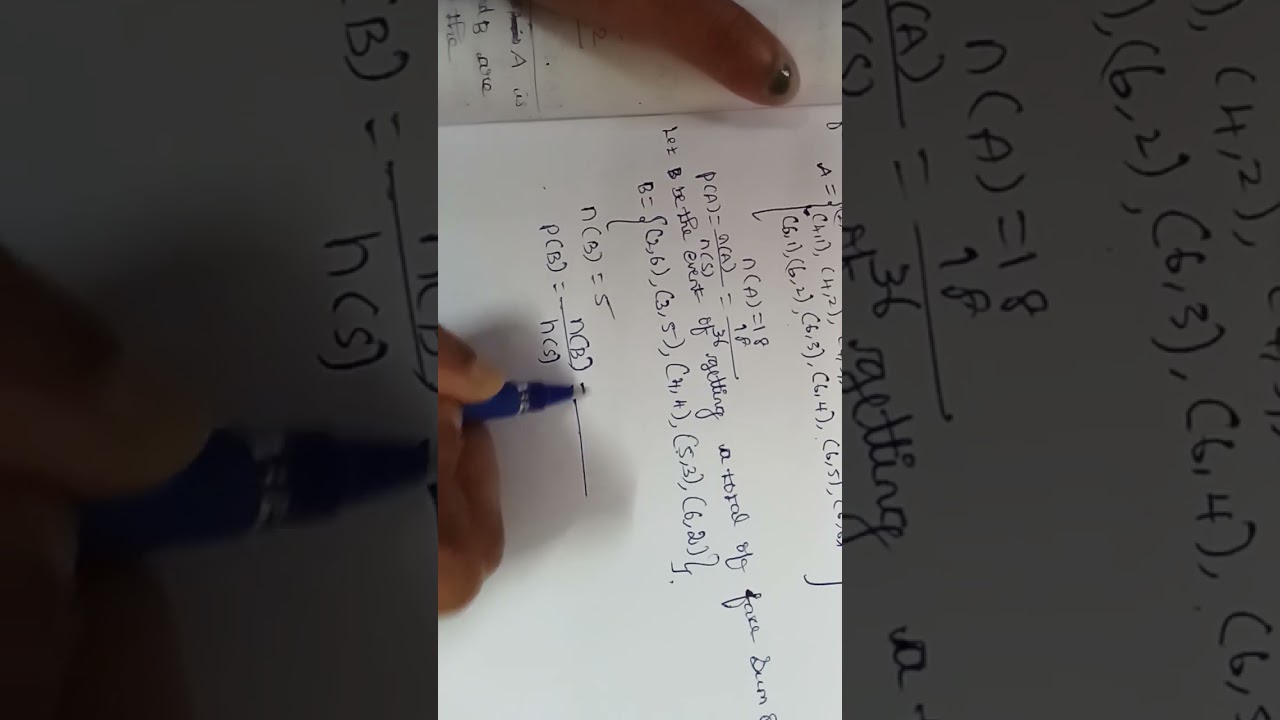 A = {
(4,1), (4,2),
(6,1), (6,2), (6,3), (6,4), (6,5),
n(A) = 18
P(A) = n(A)/n(S) = 18/36
Let B be the event of getting a total of face sum 8
B = {(2,6), (3,5), (4,4), (5,3), (6,2)}.
n(B) = 5
P(B) = n(B)/n(S)
A is
are
the
2